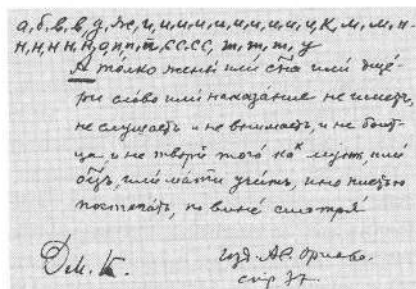 а, б, в, в, д, ж, и, и, и, и, и, и, и, и, и, К, м, м, н-
н, н, н, н, о, п, п, т, СС, СС, т, т, т, у
А толко жены или сна или дще-
ри слово или наказание не имет,
не слушаетъ и не внимаетъ, и не боит-
ца, и не творѝ того ка^к мужъ, или
оцъ, или мати учитъ, ино плетью
постегать, по вине смотря
Дм. К.
изд. А.С. Орлова.
стр. 37.